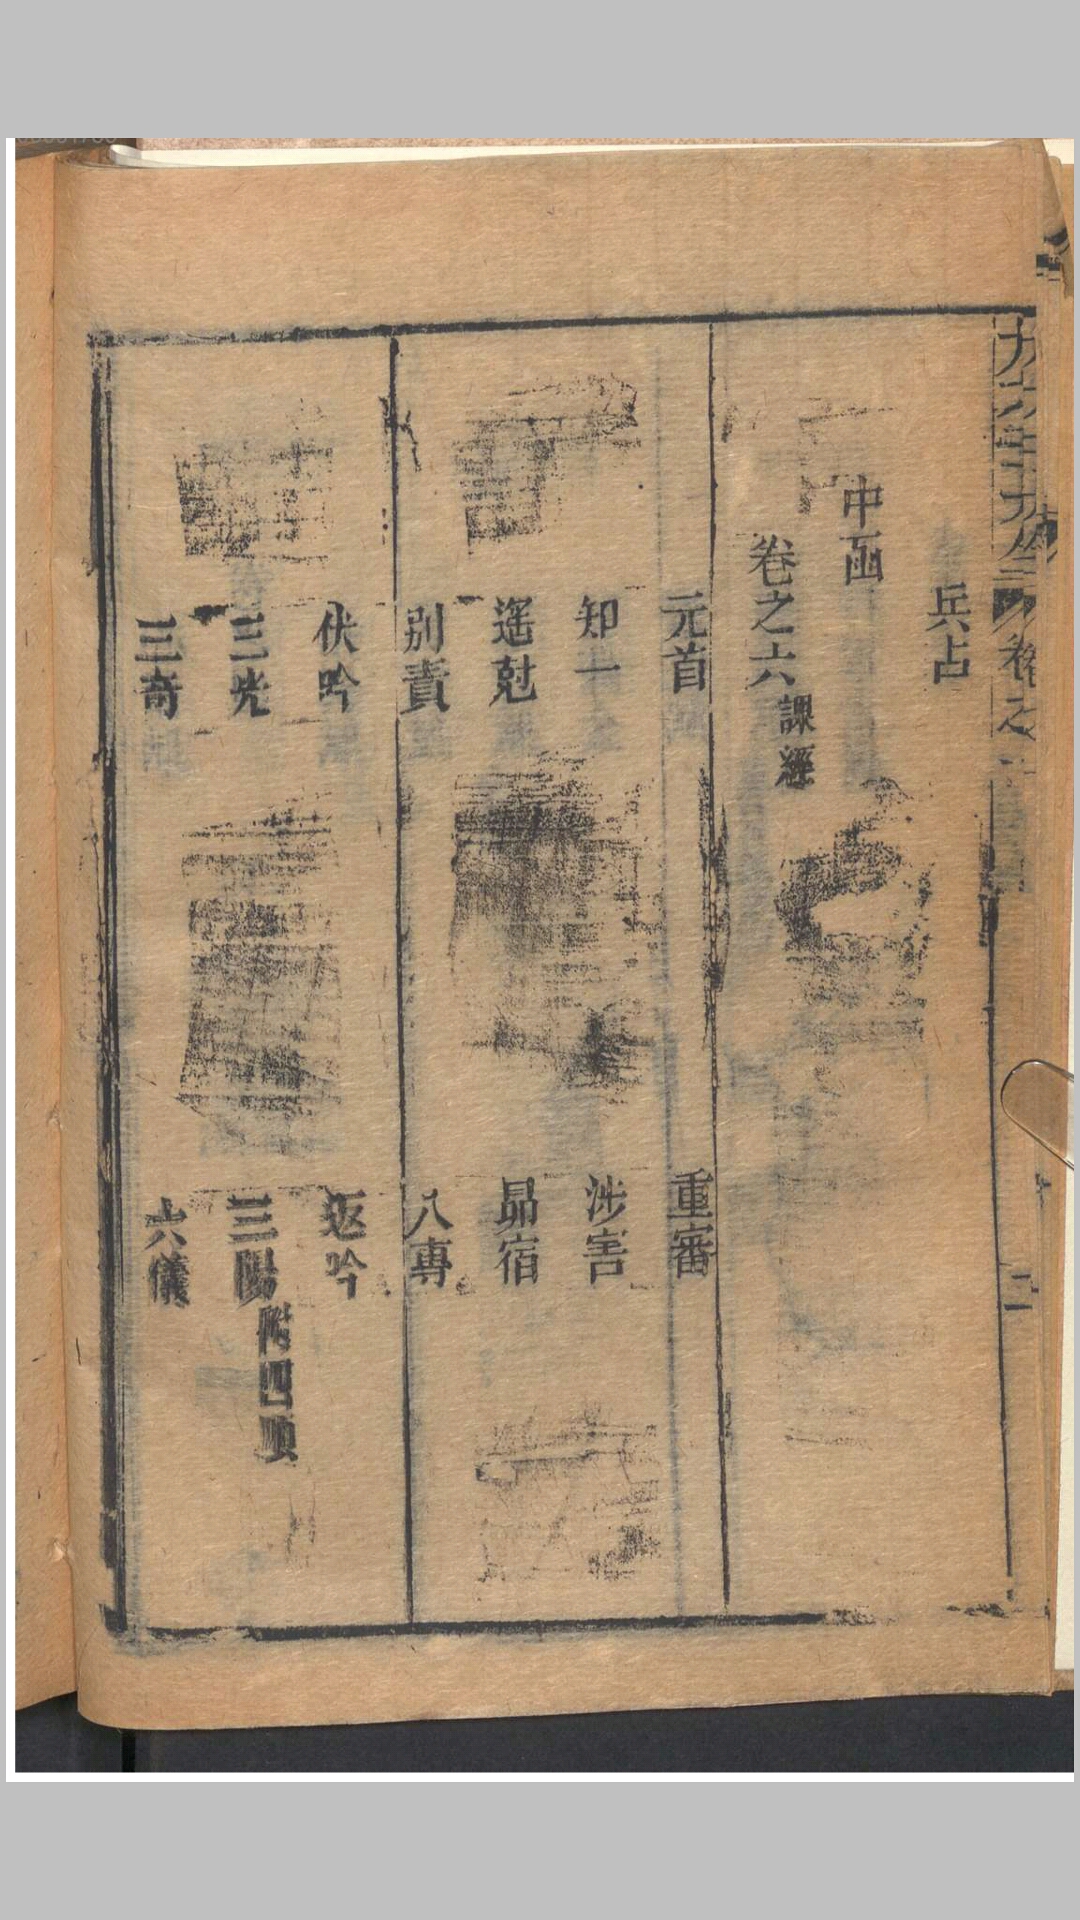 兵占
中函
卷之六 課經
元首 重審
知一 涉害
遙尅 昴宿
別責 八專
伏吟 返吟
三光 三陽 附四順
三奇 六儀
卷之
二